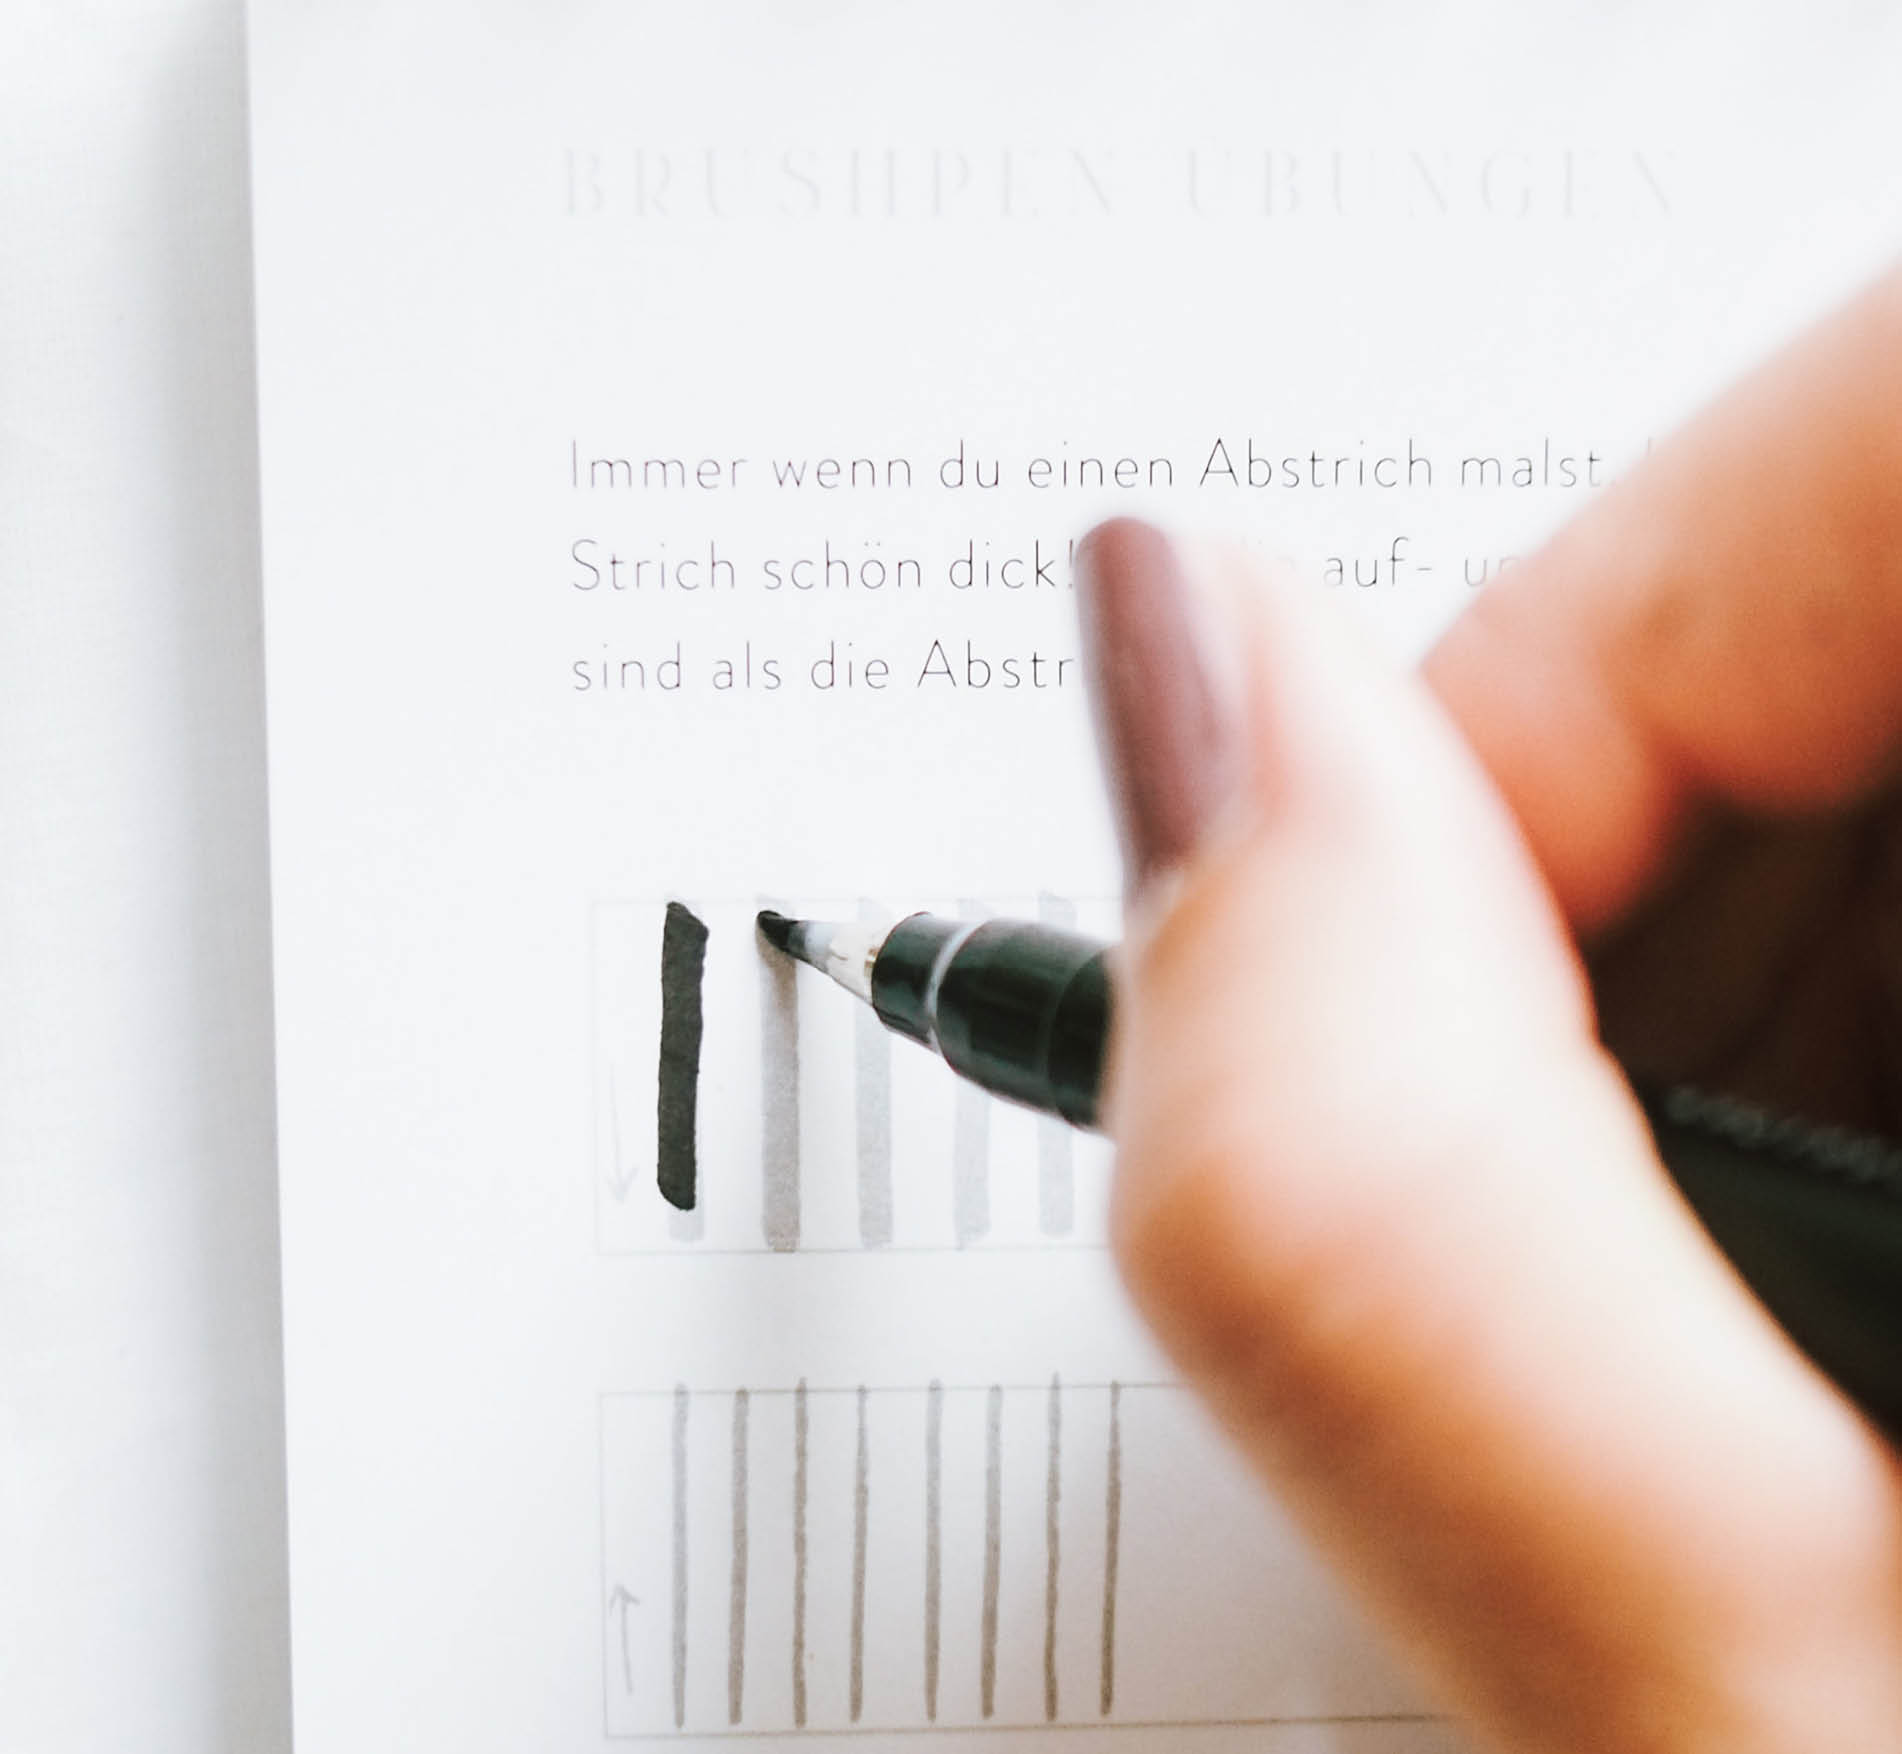 BRUSHPEN ÜBUNGEN
Immer wenn du einen Abstrich malst,
Strich schön dick! auf-
sind als die